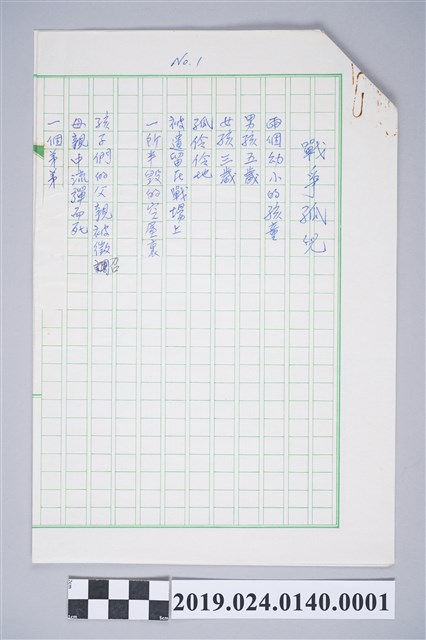 No. 1
戰爭孤兒
兩個幼小的孩童
男孩五歲
女孩三歲
孤伶伶地
被遺留在戰場上
一所半毀的空屋裏
孩子們的父親被徵召
母親中流彈而死
一個弟弟
2019.024.0140.0001